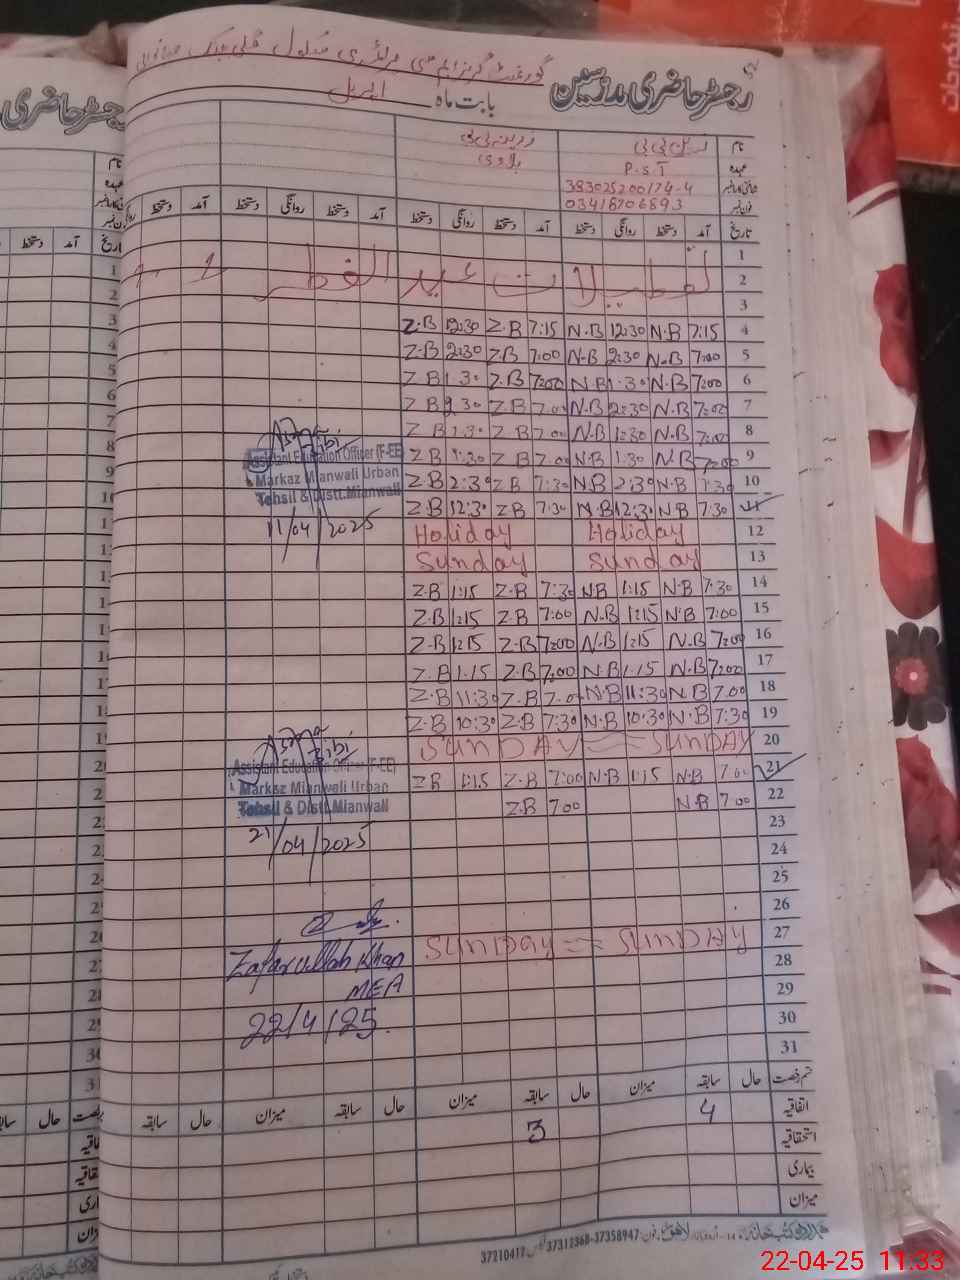 رجسٹر حاضری مدرسین
بابت ماہ اپریل
نام
عہدہ P.S.T
38302520017 4-4
03418706893
تاریخ آمد دستخط روانگی دستخط آمد دستخط روانگی دستخط آمد دستخط روانگی دستخط آمد دستخط
1
2 تعطیلات عید الفطر
3
4 7:15 N.B 12:30 N.B 7:15 Z.B 12:30 Z.B
5 7:00 N.B 2:30 N.B 7:00 Z.B 2:30 Z.B
6 7:00 N.B 1:30 N.B 7:00 Z.B 1:30 Z.B
7 7:00 N.B 2:30 N.B 7:00 Z.B 2:30 Z.B
8 7:00 N.B 1:30 N.B 7:00 Z.B 1:30 Z.B
9 7:00 N.B 1:30 N.B 7:00 Z.B 1:30 Z.B
10 7:30 N.B 2:30 N.B 7:30 Z.B 2:30 Z.B
11 7:30 N.B 12:30 N.B 7:30 Z.B 12:30 Z.B
12 Holiday Holiday
13 Sunday Sunday
14 7:30 N.B 1:15 N.B 7:30 Z.B 1:15 Z.B
15 7:00 N.B 1:15 N.B 7:00 Z.B 1:15 Z.B
16 7:00 N.B 1:15 N.B 7:00 Z.B 1:15 Z.B
17 7:00 N.B 1:15 N.B 7:00 Z.B 1:15 Z.B
18 7:00 N.B 11:30 N.B 7:00 Z.B 11:30 Z.B
19 7:30 N.B 10:30 N.B 7:30 Z.B 10:30 Z.B
20 SUNDAY = SUNDAY
21 7:00 N.B 1:15 N.B 7:00 Z.B 1:15 Z.B
22 7:00 N.B 7:00 Z.B
23
24
25
26
27 SUNDAY = SUNDAY
28
29
30
31
Asma Bibi
Assistant Education Officer (F-EE)
Markaz Mianwali Urban
Tehsil & Distt.Mianwali
11/04/2025
Asma Bibi
Assistant Education Officer (F-EE)
Markaz Mianwali Urban
Tehsil & Distt.Mianwali
21/04/2025
Zafarullah Khan
MEA
22/4/25
قسم رخصت حال سابقہ میزان حال سابقہ میزان حال سابقہ میزان حال سابقہ
اتفاقیہ 4 3
استحقاقیہ
بیماری
میزان
37210417 37312368-37358947
22-04-25 11:33